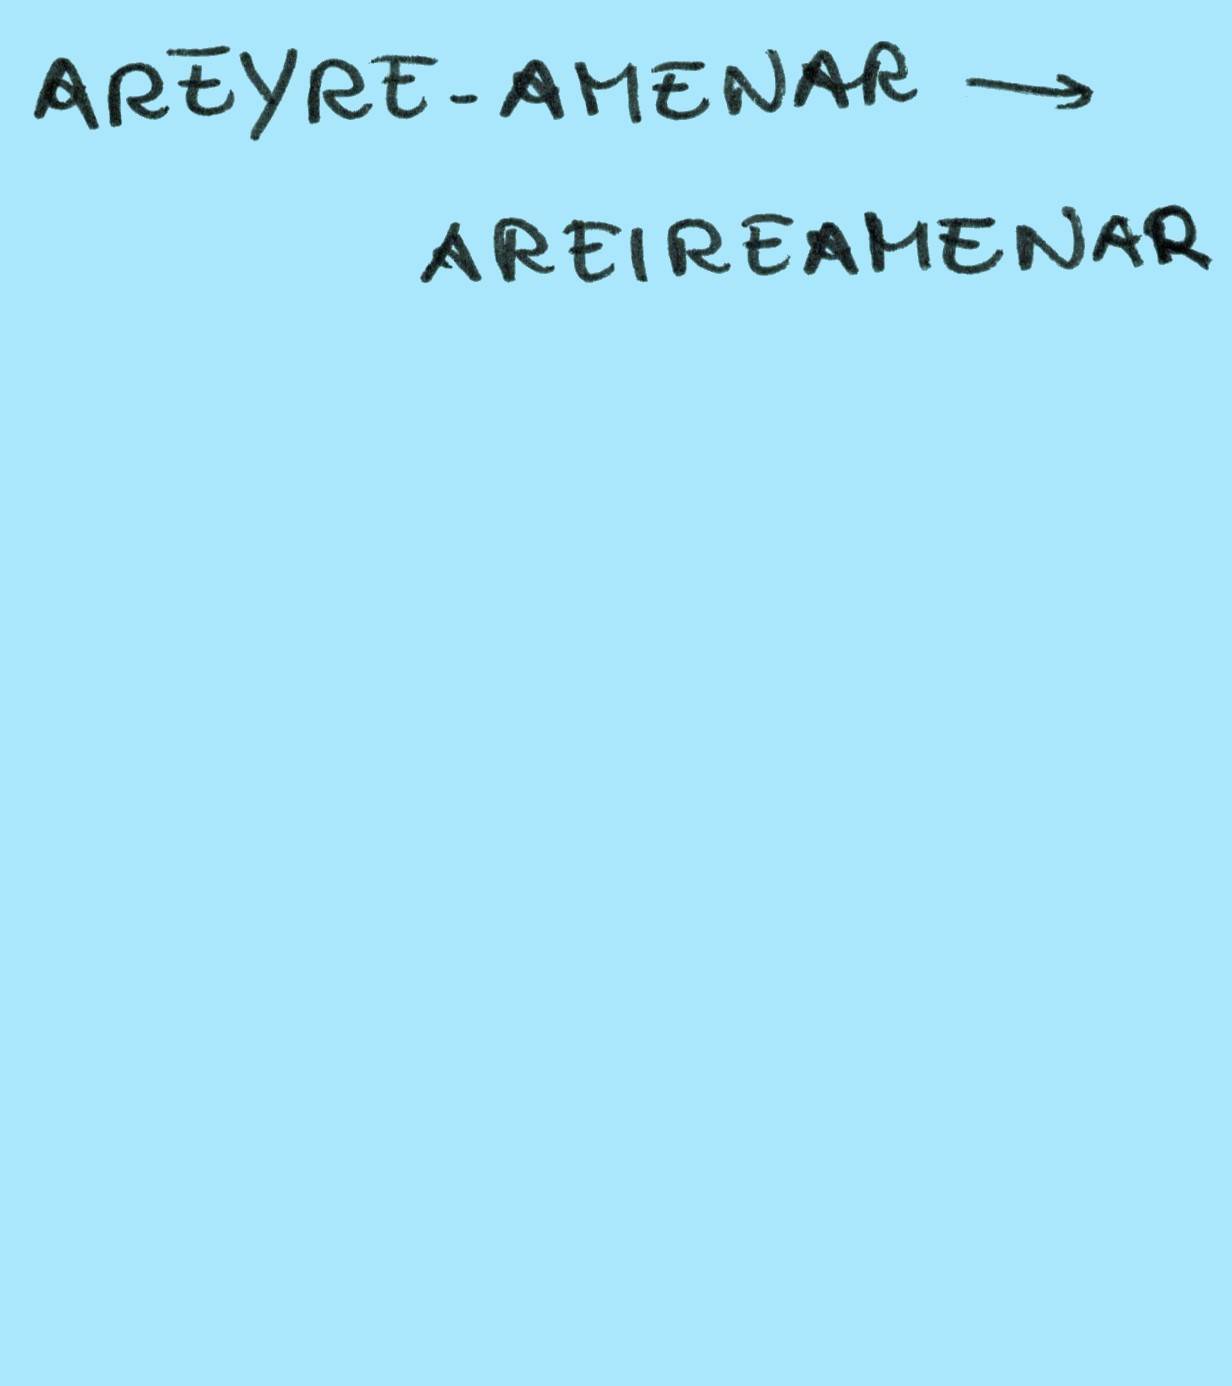 AREYRE-AMENAR →
AREIREAMENAR